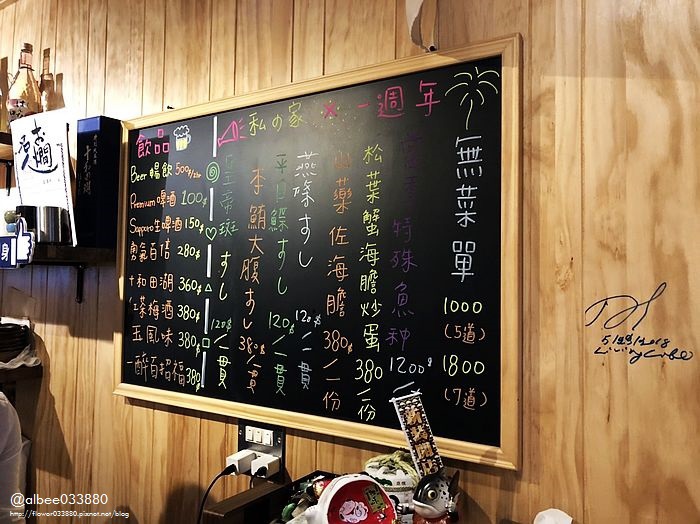 私の家 一週年
飲品
Beer 暢飲 500/2hr
Premium啤酒 100$
Sapporo生啤酒 150$
勇氣百倍 280$
十和田湖 360$
紅茶梅酒 380$
玉風味 380$
一醉百招福 380$
皇帝斑すし 120$/一貫
本鮪大腹すし 380$/一貫
平目鰈すし 120$/一貫
燕條すし 120$/一貫
山藥佐海膽 380/一份
松葉蟹海膽炒蛋 380/一份
特殊魚種 1200/一
無菜單
1000
(5道)
1800
(7道)
5/28/2018
@albee033880
http://flower033880.pixnet.net/blog